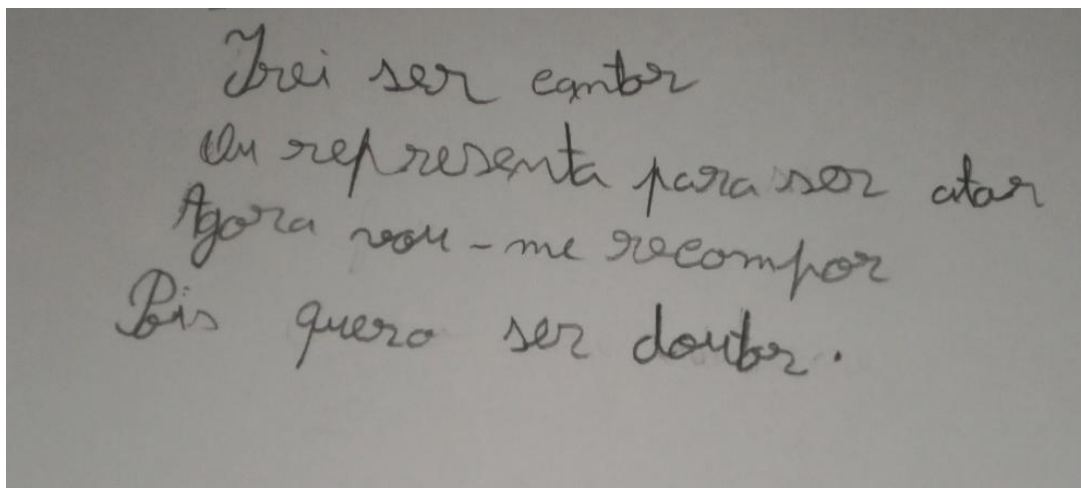 Irei ser cantor
Ou representa para ser ator
Agora vou-me recompor
Pois quero ser doutor.